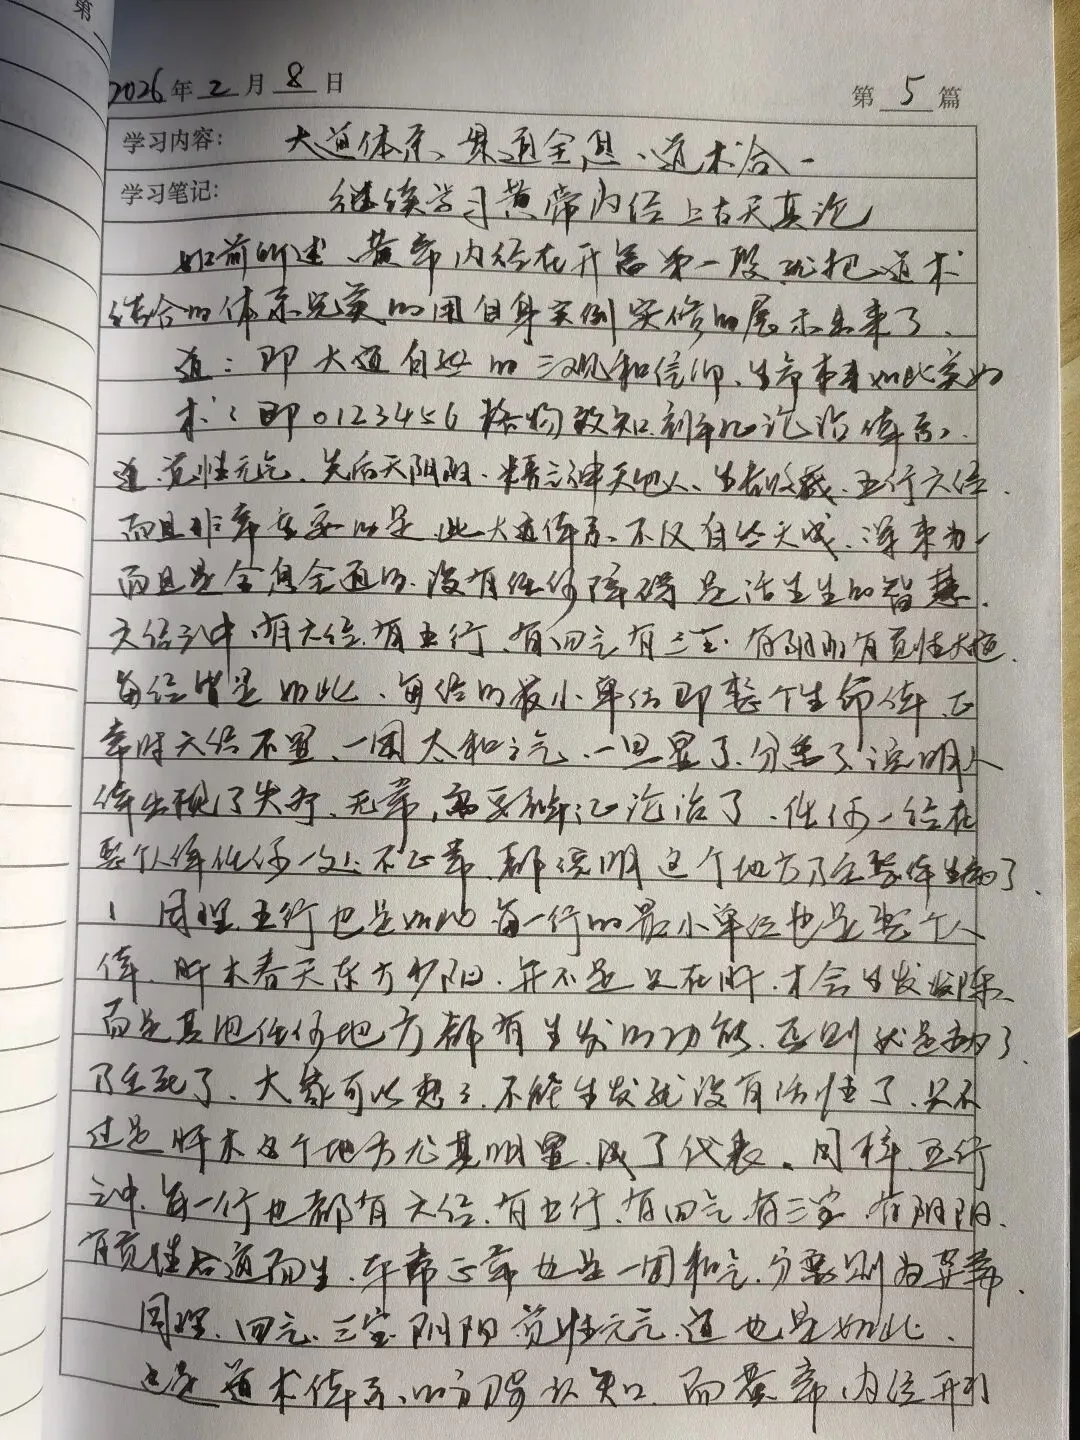 第
2026年2月8日 第5篇
学习内容: 大道体系、贯通全息、道术合一
学习笔记: 继续学习黄帝内经上古天真论
如前所述、黄帝内经在开篇第一段就把道术
结合的体系完美的用自身实例实修的展示出来了、
道:即大道自然的三观和信仰、生命本来如此实如
术:即0123456格物致知、辨证论治体系、
道、觉性元气、先后天阴阳、精气神天地人、生长收藏、五行六经、
而且非常重要的是、此大道体系、不仅自然天成、浑束为一
而且是全息全通的、没有任何障碍是活生生的智慧、
六经之中、有六经、有五行、有四气有三宝、有阴阳有觉性大道、
每经皆是如此、每经的最小单位即整个生命体、正
常时六经不显、一团太和之气、一旦显了、分离了、说明人
体出现了失衡、无常、需要辨证论治了、任何一经在
整个人体任何一处、不正常、都说明这个地方乃至整体生病了、
1 同理、五行也是如此每一行的最小单位也是整个人
体、肝木春天东方少阳、并不是只在肝、才会生发发陈、
而是其他任何地方都有生发的功能、否则就是病了、
乃至死了、大家可以想想、不能生发就没有活性了、只不
过是肝木这个地方尤其明显、成了代表。同样、五行
之中、每一行也都有六经、有五行、有四气、有三宝、有阴阳、
有觉性大道而生、平常正常也是一团和气、分离则为异常、
同理、四气、三宝、阴阳、觉性元气、道也是如此、
这是道术体系、的方写认知、而黄帝内经开引